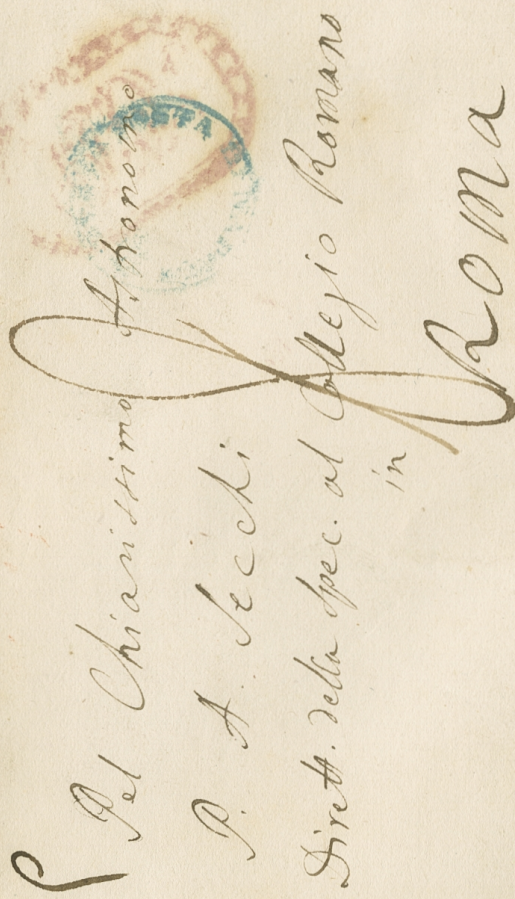 Pel Chiarissimo Astronomo
P. A. Secchi
Dirett. della Spec. al Collegio Romano
in
Roma
POSTA